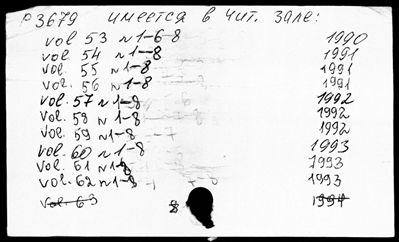 P3679 имеется в чит. зале:
vol 53 N1-6-8 1990
vol. 54 N1-8 1991
vol. 55 N1-8 1991
vol. 56 N1-8 1991
vol. 57 N1-8 1992
vol. 58 N1-8 1992
vol. 59 N1-8 1992
vol. 60 N1-8 1993
vol. 61 N1-8 1993
vol. 62 N1-8 1993
vol. 63 8 1994